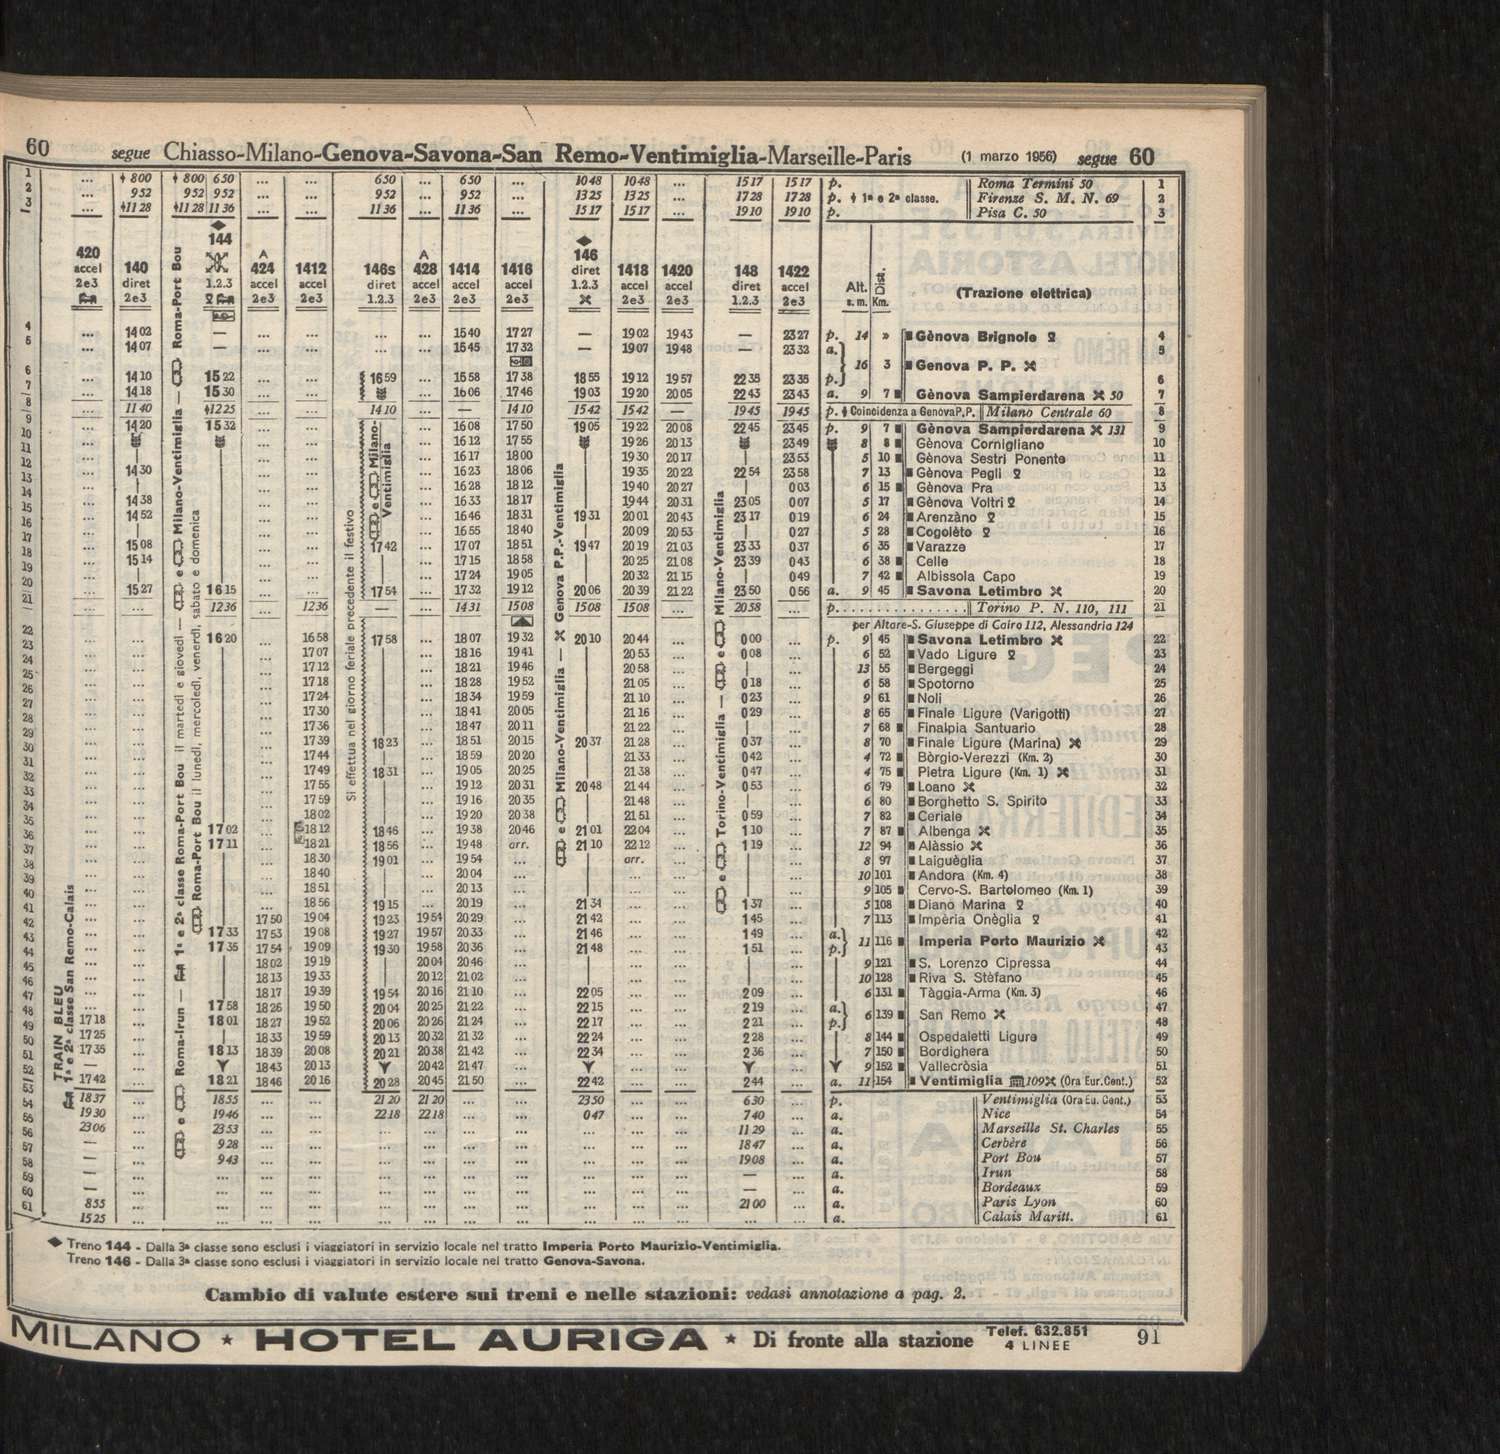 60 segue Chiasso-Milano-Genova-Savona-San Remo-Ventimiglia-Marseille-Paris (1 marzo 1956) segue 60
1 ... 800 800 650 ... ... 650 ... 650 ... 1048 1048 ... 1517 1517 p. Roma Termini 50 1
2 ... 952 952 952 ... ... 952 ... 952 ... 1325 1325 ... 1728 1728 p. 1ª e 2ª classe. Firenze S. M. N. 69 2
3 ... 1128 1128 1136 ... ... 1136 ... 1136 ... 1517 1517 ... 1910 1910 p. Pisa C. 50 3
420 140 144 A 424 1412 146s A 428 1414 1416 146 1418 1420 148 1422
accel diret accel accel diret accel accel accel diret accel accel diret accel
2e3 2e3 1.2.3 2e3 2e3 1.2.3 2e3 2e3 2e3 1.2.3 2e3 2e3 1.2.3 2e3
Alt. s. m. Dist. Km. (Trazione elettrica)
4 ... 1402 — ... ... ... ... 1540 1727 — 1902 1943 — 2327 p. 14 » Gènova Brignole 4
5 ... 1407 — ... ... ... ... 1545 1732 — 1907 1948 — 2332 a. 5
16 3 Gènova P. P.
6 ... 1410 1522 ... ... 1659 ... 1558 1738 1855 1912 1957 2235 2335 p. 6
7 ... 1418 1530 ... ... ... 1606 1746 1903 1920 2005 2243 2343 a. 9 7 Gènova Sampierdarena 50 7
8 ... 1140 1225 ... ... 1410 ... — 1410 1542 1542 — 1945 1945 p. Coincidenza a GenovaP.P. Milano Centrale 60 8
9 ... 1420 1532 ... ... ... 1608 1750 1905 1922 2008 2245 2345 p. 9 7 Gènova Sampierdarena 131 9
10 ... ... ... ... 1612 1755 1926 2013 2349 8 8 Gènova Cornigliano 10
11 ... ... ... ... 1617 1800 1930 2017 2353 5 10 Gènova Sestri Ponente 11
12 ... 1430 ... ... ... 1623 1806 1935 2022 2254 2358 7 13 Gènova Pegli 12
13 ... ... ... ... 1628 1812 1940 2027 003 6 15 Gènova Pra 13
14 ... 1438 ... ... ... 1633 1817 1944 2031 2305 007 5 17 Gènova Voltri 14
15 ... 1452 ... ... ... 1646 1831 1931 2001 2043 2317 019 6 24 Arenzàno 15
16 ... ... ... ... 1655 1840 2009 2053 027 5 28 Cogolèto 16
17 ... 1508 ... ... 1742 ... 1707 1851 1947 2019 2103 2333 037 6 35 Varazze 17
18 ... 1514 ... ... ... 1715 1858 2025 2108 2339 043 6 38 Celle 18
19 ... ... ... ... 1724 1905 2032 2115 049 7 42 Albissola Capo 19
20 ... 1527 1615 ... ... 1754 ... 1732 1912 2006 2039 2122 2350 056 a. 9 45 Savona Letimbro 20
21 ... ... 1236 ... 1236 — ... 1431 1508 1508 1508 ... 2058 ... p. Torino P. N. 110, 111 21
per Altare-S. Giuseppe di Cairo 112, Alessandria 124
22 ... ... 1620 ... 1658 1758 ... 1807 1932 2010 2044 ... 000 ... p. 9 45 Savona Letimbro 22
23 ... ... ... 1707 ... 1816 1941 2053 ... 008 ... 6 52 Vado Ligure 23
24 ... ... ... 1712 ... 1821 1946 2058 ... ... 13 55 Bergeggi 24
25 ... ... ... 1718 ... 1828 1952 2105 ... 018 ... 6 58 Spotorno 25
26 ... ... ... 1724 ... 1834 1959 2110 ... 023 ... 9 61 Noli 26
27 ... ... ... 1730 ... 1841 2005 2116 ... 029 ... 8 65 Finale Ligure (Varigotti) 27
28 ... ... ... 1736 ... 1847 2011 2122 ... ... 7 68 Finalpia Santuario 28
29 ... ... ... 1739 1823 ... 1851 2015 2037 2128 ... 037 ... 8 70 Finale Ligure (Marina) 29
30 ... ... ... 1744 ... 1859 2020 2133 ... 042 ... 4 72 Bòrgio-Verezzi (Km. 2) 30
31 ... ... ... 1749 1831 ... 1905 2025 2138 ... 047 ... 4 75 Pietra Ligure (Km. 1) 31
32 ... ... ... 1755 ... 1912 2031 2048 2144 ... 053 ... 6 79 Loano 32
33 ... ... ... 1759 ... 1916 2035 2148 ... ... 6 80 Borghetto S. Spirito 33
34 ... ... ... 1802 ... 1920 2038 2151 ... 059 ... 7 82 Ceriale 34
35 ... ... 1702 ... 1812 1846 ... 1938 2046 2101 2204 ... 110 ... 7 87 Albenga 35
36 ... ... 1711 ... 1821 1856 ... 1948 arr. 2110 2212 ... 119 ... 12 94 Alàssio 36
37 ... ... ... 1830 1901 ... 1954 ... arr. ... ... 8 97 Laiguèglia 37
38 ... ... ... 1840 ... 2004 ... ... ... ... 10 101 Andora (Km. 4) 38
39 ... ... ... 1851 ... 2013 ... ... ... ... 9 105 Cervo-S. Bartolomeo (Km. 1) 39
40 ... ... ... 1856 1915 ... 2019 ... 2134 ... ... 137 ... 5 108 Diano Marina 40
41 ... ... 1750 1904 1923 1954 2029 ... 2142 ... ... 145 ... 7 113 Impèria Onèglia 41
42 ... ... 1733 1753 1908 1927 1957 2033 ... 2146 ... ... 149 ... a. 42
11 116 Imperia Porto Maurizio
43 ... ... 1735 1754 1909 1930 1958 2036 ... 2148 ... ... 151 ... p. 43
44 ... ... 1802 1919 2004 2046 ... ... ... ... 9 121 S. Lorenzo Cipressa 44
45 ... ... 1813 1933 2012 2102 ... ... ... ... 10 128 Riva S. Stèfano 45
46 ... ... 1817 1939 1954 2016 2110 ... 2205 ... ... 209 ... 6 131 Tàggia-Arma (Km. 3) 46
47 ... ... 1758 1826 1950 2004 2025 2122 ... 2215 ... ... 219 ... a. 47
6 139 San Remo
48 1718 ... 1801 1827 1952 2006 2026 2124 ... 2217 ... ... 221 ... p. 48
49 1725 ... 1833 1959 2013 2032 2132 ... 2224 ... ... 228 ... 8 144 Ospedaletti Ligure 49
50 1735 ... 1813 1839 2008 2021 2038 2142 ... 2234 ... ... 236 ... 7 150 Bordighera 50
51 — ... 1843 2013 2042 2147 ... ... ... ... 9 152 Vallecròsia 51
52 1742 ... 1821 1846 2016 2028 2045 2150 ... 2242 ... ... 244 ... a. 11 154 Ventimiglia 109 (Ora Eur.Cent.) 52
53 1837 ... 1855 ... ... 2120 2120 ... ... 2350 ... ... 630 ... p. Ventimiglia (Ora Eu. Cent.) 53
54 1930 ... 1946 ... ... 2218 2218 ... ... 047 ... ... 740 ... a. Nice 54
55 2306 ... 2353 ... ... ... ... ... ... ... ... ... 1129 ... a. Marseille St. Charles 55
56 — ... 928 ... ... ... ... ... ... ... ... ... 1847 ... a. Cerbère 56
57 — ... 943 ... ... ... ... ... ... ... ... ... 1908 ... a. Port Bou 57
58 — ... ... ... ... ... ... ... ... ... ... ... — ... a. Irun 58
59 — ... ... ... ... ... ... ... ... ... ... ... — ... a. Bordeaux 59
60 855 ... ... ... ... ... ... ... ... ... ... ... 2100 ... a. Paris Lyon 60
61 1525 ... ... ... ... ... ... ... ... ... ... ... ... ... a. Calais Maritt. 61
TRAIN BLEU
1ª e 2ª classe San Remo-Calais
e Roma-Irun — 1ª e 2ª classe Roma-Port Bou il martedì e giovedì — e Milano-Ventimiglia — Roma-Port Bou
Roma-Port Bou il lunedì, mercoledì, venerdì, sabato e domenica
Si effettua nel giorno feriale precedente il festivo
e Milano-Ventimiglia
e Milano-Ventimiglia — Genova P.P.-Ventimiglia
e Torino-Ventimiglia — e Milano-Ventimiglia
Treno 144 - Dalla 3ª classe sono esclusi i viaggiatori in servizio locale nel tratto Imperia Porto Maurizio-Ventimiglia.
Treno 146 - Dalla 3ª classe sono esclusi i viaggiatori in servizio locale nel tratto Genova-Savona.
Cambio di valute estere sui treni e nelle stazioni: vedasi annotazione a pag. 2.
MILANO ★ HOTEL AURIGA ★ Di fronte alla stazione Telef. 632.851 4 LINEE 91